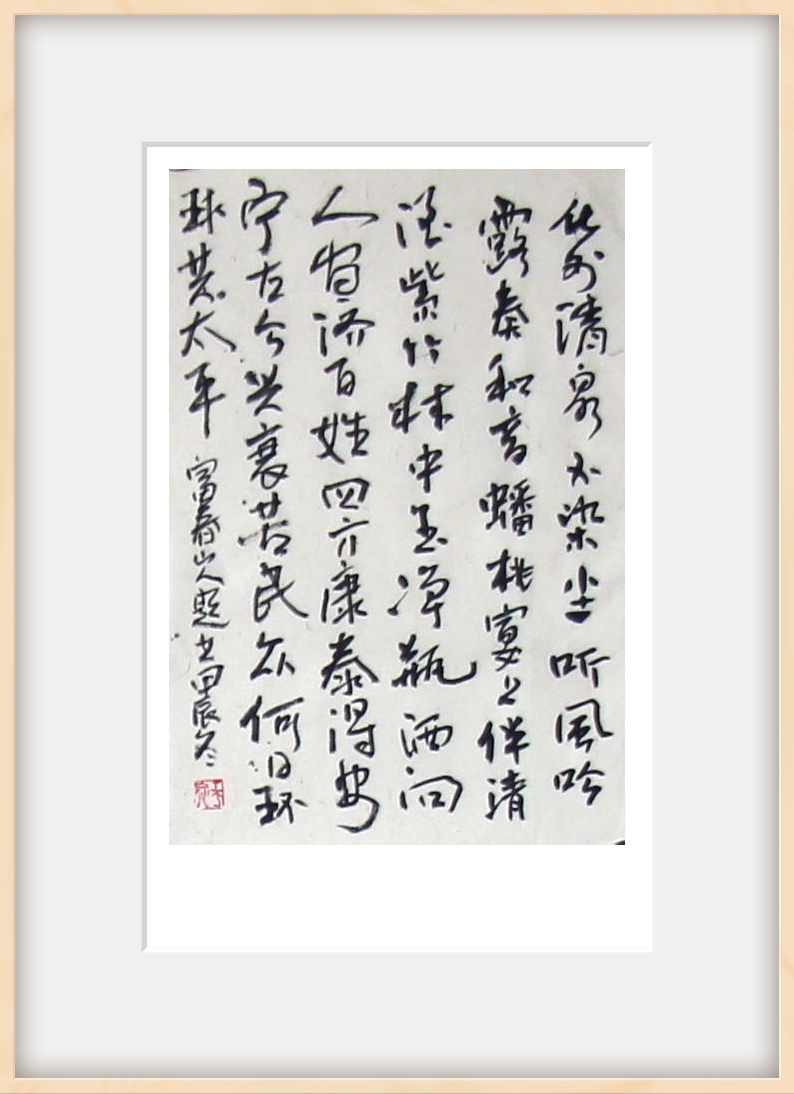 化外清泉不染尘听风吟
露奏和音蟠桃宴上伴清
酒紫竹林中玉净瓶洒向
人间济百姓四方康泰得安
宁古今兴衰苦民众何日环
球共太平
富春山人题书甲辰冬